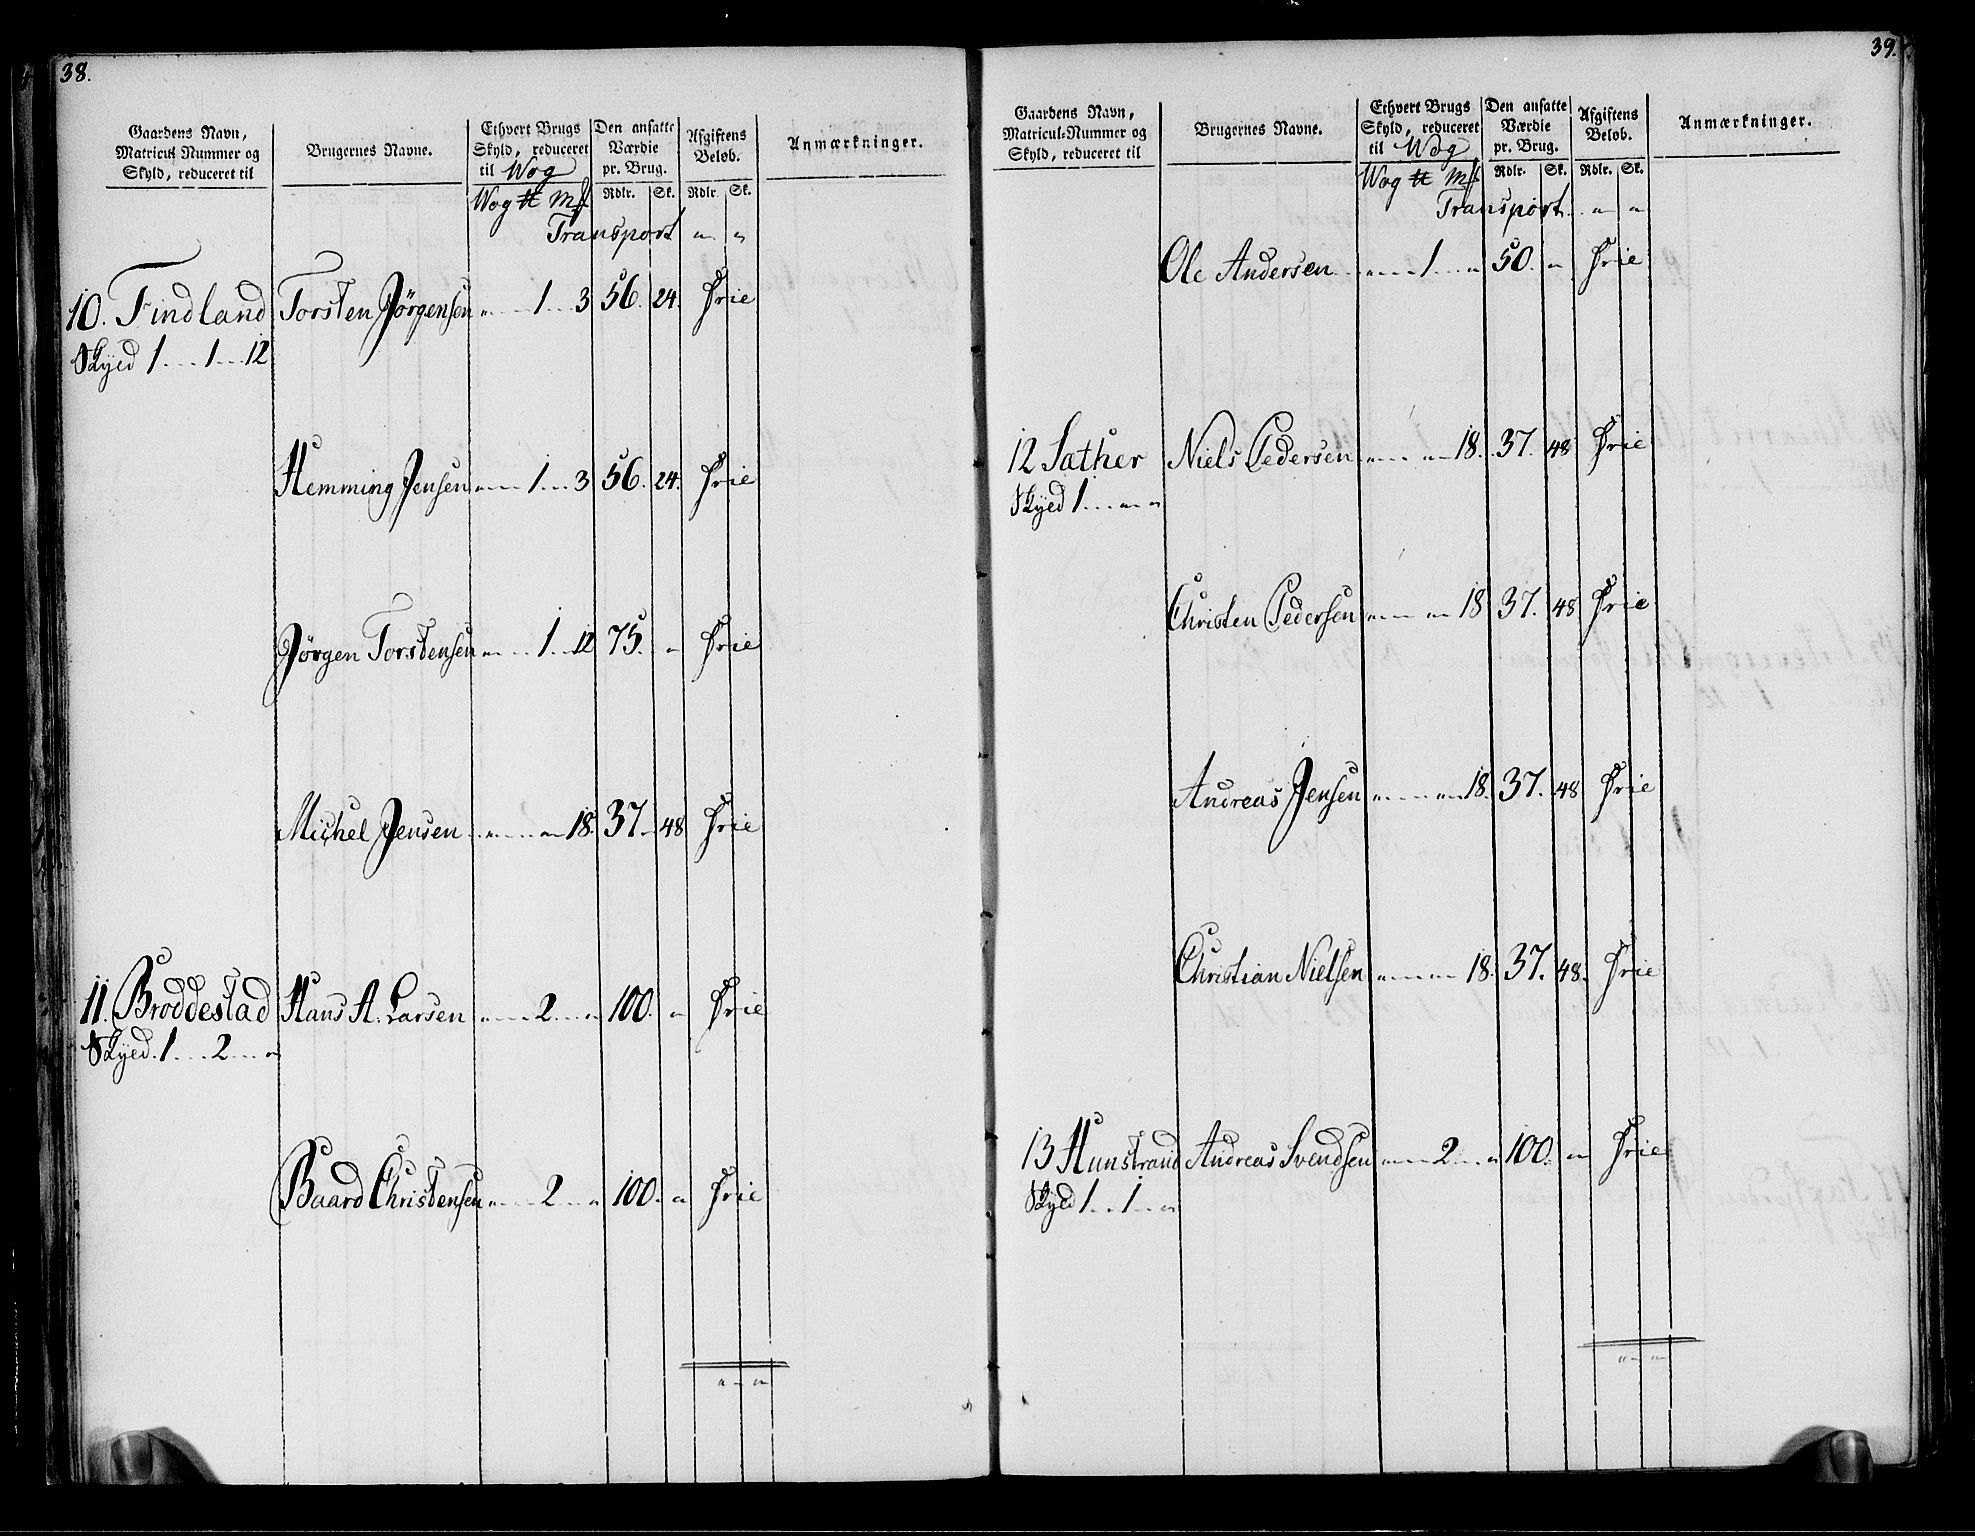 38.
Gaardens Navn, Matricul Nummer og Skyld, reduceret til
Brugernes Navne.
Ethvert Brugs Skyld, reduceret til Wog
Den ansatte Værdie pr. Brug.
Afgiftens Beløb.
Anmærkninger.
Wog ℔ Mk Rdlr. Sk. Rdlr. Sk.
Transport " "
10. Findland Torsten Jørgensen " 1 3 56. 24. Frie
Skyld 1 1 12
Hemming Jensen " 1 3 56. 24. Frie
Jørgen Torstensen " 1 12 75. " Frie
Michel Jensen " " 18. 37 48 Frie
11. Broddestad Hans A. Larsen " 2 " 100. " Frie
Skyld. 1 2 "
Baard Christensen " 2 " 100. " Frie
" "
39.
Gaardens Navn, Matricul-Nummer og Skyld, reduceret til
Brugernes Navne.
Ethvert Brugs Skyld, reduceret til Wog
Den ansatte Værdie pr. Brug.
Afgiftens Beløb.
Anmærkninger.
Wog ℔ Mk Rdlr. Sk. Rdlr. Sk.
Transport " "
Ole Andersen " 1 " 50. " Frie
12 Sæther Niels Pedersen " " 18. 37. 48 Frie
Skyld 1 " "
Christen Pedersen " " 18 37. 48 Frie
Andreas Jensen " " 18. 37. 48 Frie
Christian Nielsen " " 18. 37. 48. Frie
13 Hunstrand Andreas Svendsen " 2 " 100. " Frie
Skyld 1 1 "
" "